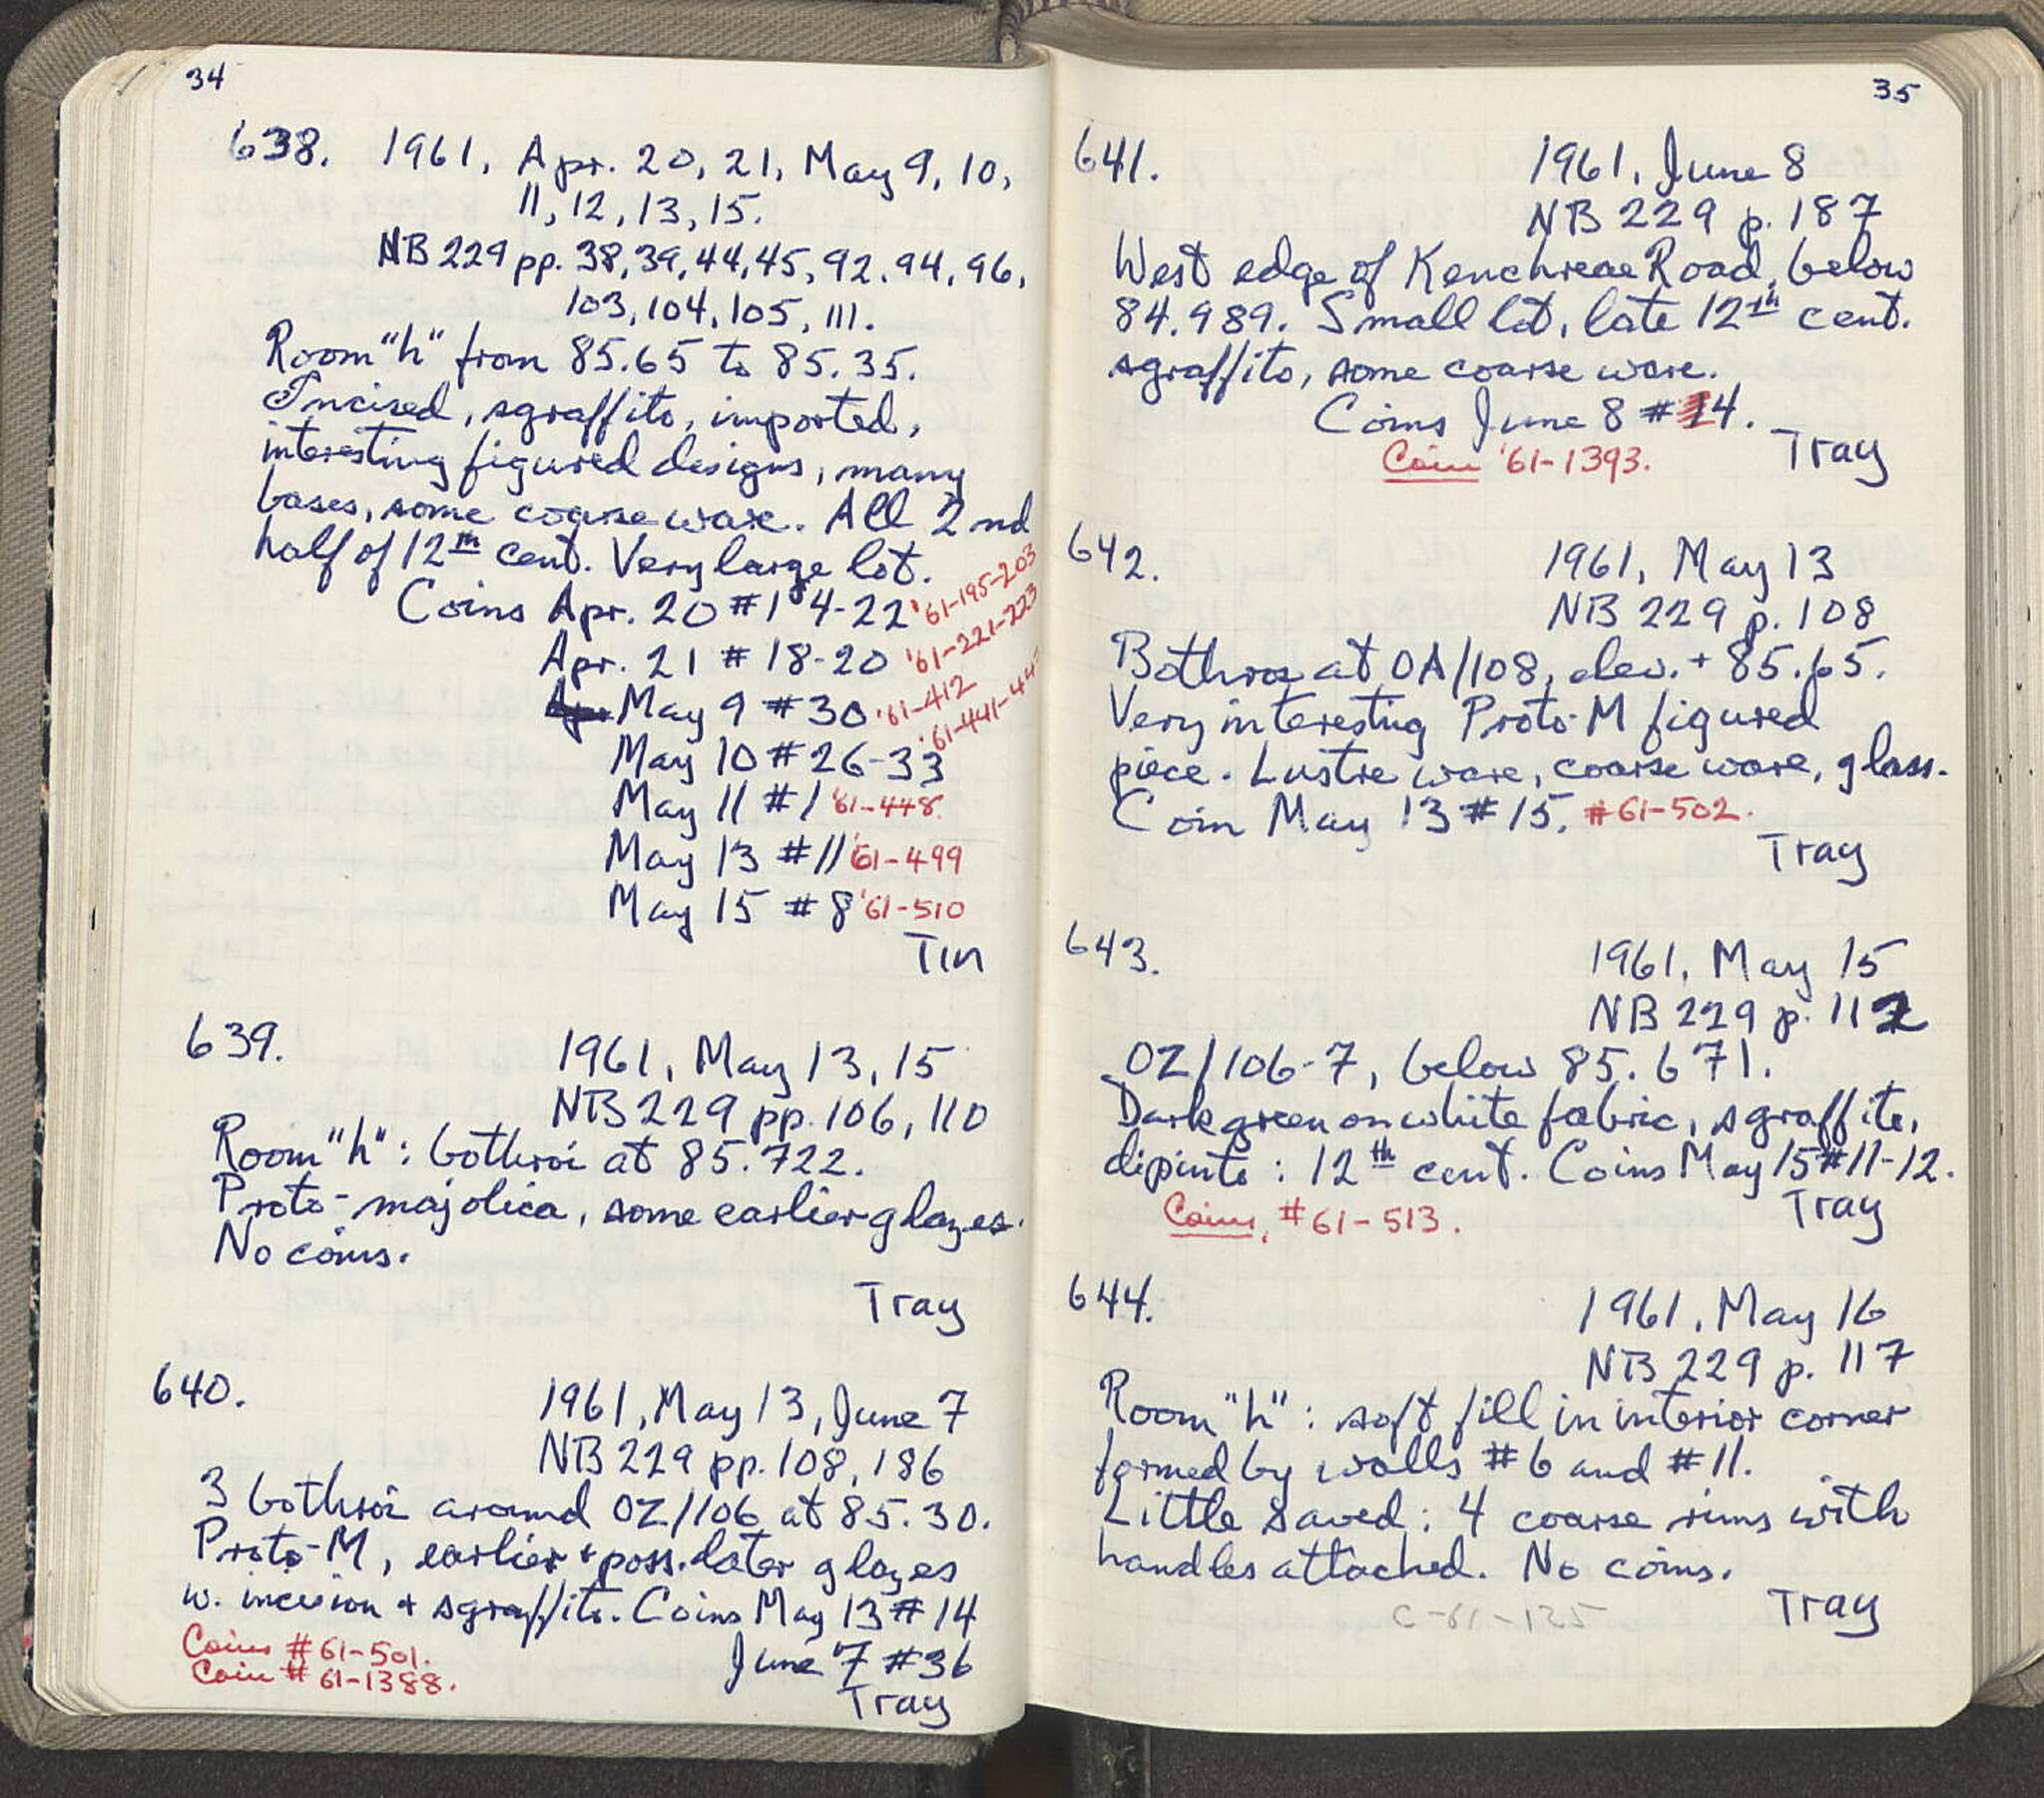 34
638. 1961, Apr. 20, 21, May 9, 10,
11, 12, 13, 15.
NB 229 pp. 38, 39, 44, 45, 92, 94, 96,
103, 104, 105, 111.
Room "h" from 85.65 to 85.35.
Incised, sgraffito, imported,
interesting figured designs, many
bases, some coarse ware. All 2nd
half of 12th cent. Very large lot.
Coins Apr. 20 #14-22 '61-195-203
Apr. 21 #18-20 '61-221-223
May 9 #30 '61-412
May 10 #26-33 '61-441-
May 11 #1 '61-448.
May 13 #11 '61-499
May 15 #8 '61-510
Tin
639. 1961, May 13, 15
NB 229 pp. 106, 110
Room "h": bothroi at 85.722.
Proto-majolica, some earlier glazes.
No coins.
Tray
640. 1961, May 13, June 7
NB 229 pp. 108, 186
3 bothroi around OZ/106 at 85.30.
Proto-M, earlier + poss. later glazes
w. incision + sgraffito. Coins May 13 #14
Coins #61-501. June 7 #36
Coin #61-1388.
Tray
35
641. 1961, June 8
NB 229 p. 187
West edge of Kenchreae Road, below
84.989. Small lot, late 12th cent.
sgraffito, some coarse ware.
Coins June 8 #14.
Coin '61-1393. Tray
642. 1961, May 13
NB 229 p. 108
Bothros at OA/108, elev. + 85.65.
Very interesting Proto-M figured
piece. Lustre ware, coarse ware, glass.
Coin May 13 #15. #61-502.
Tray
643. 1961, May 15
NB 229 p. 112
OZ/106-7, below 85.671.
Dark green on white fabric, sgraffito,
dipinto: 12th cent. Coins May 15 #11-12.
Coins, #61-513. Tray
644. 1961, May 16
NB 229 p. 117
Room "h": soft fill in interior corner
formed by walls #6 and #11.
Little saved: 4 coarse rims with
handles attached. No coins.
C-61-125 Tray